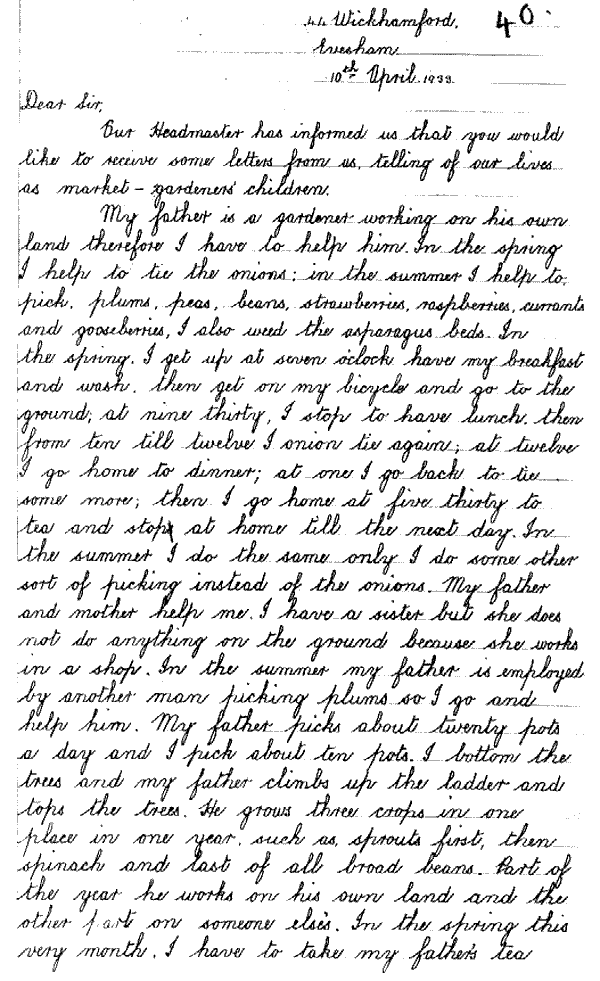 44 Wickhamford. 40.
Evesham
10th April 1939.
Dear Sir,
Our Headmaster has informed us that you would
like to receive some letters from us, telling of our lives
as market-gardeners' children.
My father is a gardener working on his own
land therefore I have to help him. In the spring
I help to tie the onions; in the summer I help to
pick, plums, peas, beans, strawberries, raspberries, currants
and gooseberries, I also weed the asparagus beds. In
the spring. I get up at seven o'clock have my breakfast
and wash, then get on my bicycle and go to the
ground; at nine thirty, I stop to have lunch, then
from ten till twelve I onion tie again; at twelve
I go home to dinner; at one I go back to tie
some more; then I go home at five thirty to
tea and stop at home till the next day. In
the summer I do the same only I do some other
sort of picking instead of the onions. My father
and mother help me. I have a sister but she does
not do anything on the ground because she works
in a shop. In the summer my father is employed
by another man picking plums so I go and
help him. My father picks about twenty pots
a day and I pick about ten pots. I bottom the
trees and my father climbs up the ladder and
tops the trees. He grows three crops in one
place in one year, such as, sprouts first, then
spinach and last of all broad beans. Part of
the year he works on his own land and the
other part on someone else's. In the spring this
very month, I have to take my father's tea